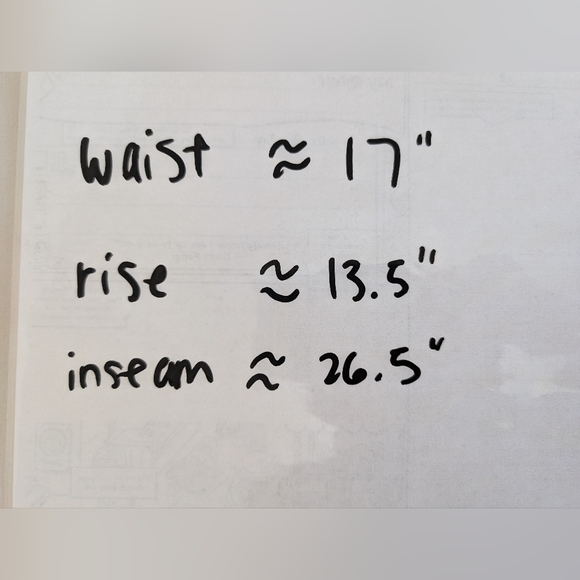 waist ≈ 17"
rise ≈ 13.5"
inseam ≈ 26.5"